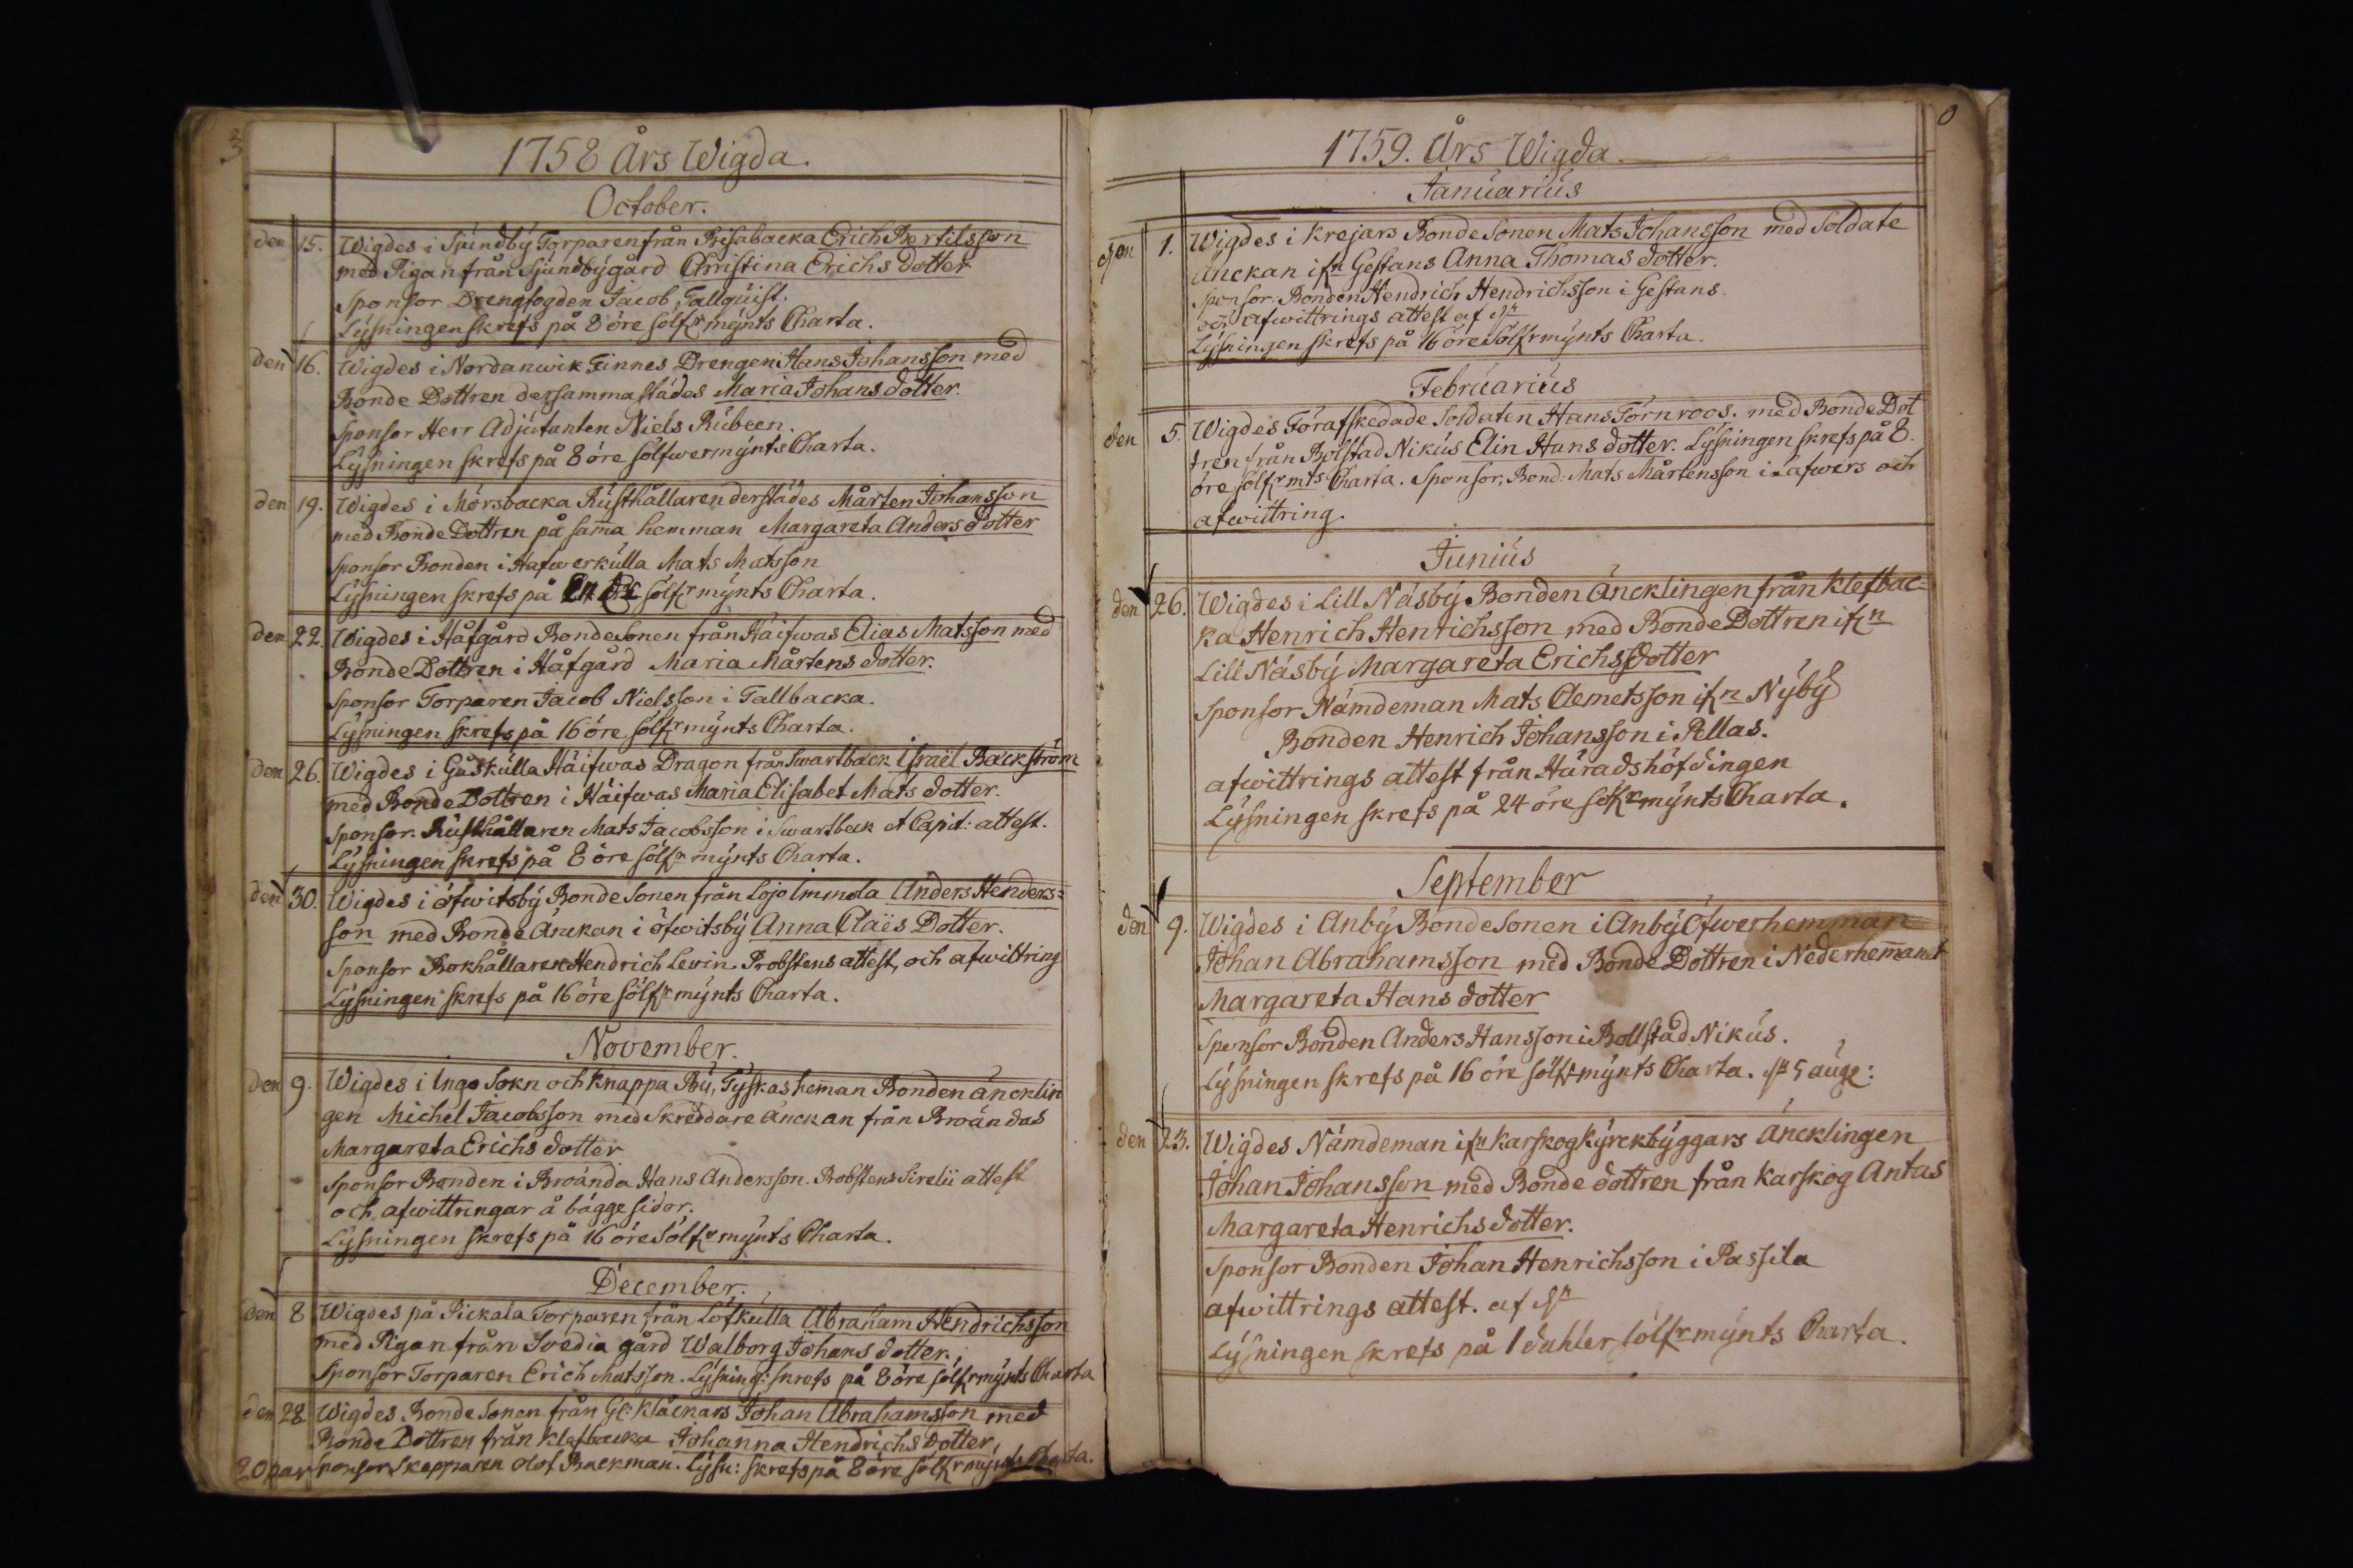 3
1758 Års Wigda.
October.
den 15. Wigdes i Sjundbÿ Torparen från Bisabacka Erich Bertilsson
med Pigan från Sjundbÿgård Christina Erichs dotter
Sponsor Drengfogden Jacob Tallquist.
Lÿsningen skrefs på 8 öre sölfr mÿnts Charta.
den 16. Wigdes i Nordanwik Finnes Drengen Hans Johansson med
Bonde Dottren dersammastädes Maria Johans dotter.
Sponsor Herr Adjutanten Niels Rubeen.
Lÿsningen skrefs på 8 öre sölfwermÿnts Charta.
den 19. Wigdes i Mörsbacka Rusthållaren derstädes Mårten Johansson
med Bonde Dottren på sam̄a hemman Margareta Anders dotter
Sponsor Bonden i Hafwerkulla Mats Matsson
Lÿsningen skrefs på sölfr mÿnts Charta.
den 22. Wigdes i Håfgård Bondesonen från Häifwas Elias Matsson med
Bonde Dottren i Håfgård Maria Mårtens dotter.
Sponsor Torparen Jacob Nielsson i Tallbacka.
Lÿsningen skrefs på 16 öre sölfr mÿnts Charta.
den 26. Wigdes i Gåskulla Häifwas Dragon från Swartback Israël Backström
med Bonde Dottren i Häifwas Maria Elisabet Mats dotter.
Sponsor. Rusthållaren Mats Jacobsson i Swartbeck et Capit: attest.
Lÿsningen skrefs på 8 öre sölfr mÿnts Charta.
den 30. Wigdes i öfwitsbÿ Bonde Sonen från Lojo Immola Anders Henders=
son med Bonde Änckan i öfwitsbÿ Anna Claës Dotter.
Sponsor Bokhållaren Hendrich Levin. Probstens attest, och afwittring
Lÿsningen skrefs på 16 öre sölfr mÿnts Charta.
November.
den 9. Wigdes i Ingo Sokn och Knappa Bÿ, Tÿskas hem̄an Bonden äncklin
gen Michel Jacobsson med Skreddare änckan från Broändas
Margareta Erichs dotter
Sponsor Bonden i Broända Hans Andersson. Probstens Sirelii attest
och afwittringar å bägge sidor.
Lÿsningen skrefs på 16 öre Sölfr mÿnts Charta.
December.
den 8 Wigdes på Pickala Torparen från Löfkulla Abraham Hendrichsson
med Pigan från Svedia gård Walborg Johans dotter.
Sponsor Torparen Erich Matsson. Lÿsning: skrefs på 8 öre sölfr mÿnts Charta
den 28 Wigdes Bonde Sonen från Gl: Klåckars Johan Abrahamsson med
Bonde Dottren från Klefbacka Johanna Hendrichs dotter,
20 par sponsor Skepparen Olof Backman. Lÿsn: skrefs på 8 öre sölfr mÿnts Charta.
0
1759. Års Wigda.
Januarius
den 1. Wigdes i Krejars Bonde Sonen Mats Johansson med Soldate
Änckan ifn Gestans Anna Thomas dotter.
Sponsor. Bonden Hendrich Hendrichsson i Gestans.
och afwittrings attest af
Lÿsningen skrefs på 16 öre Sölfr mÿnts Charta.
Februarius
den 5. Wigdes Förafskedade Soldaten Hans Törnroos. med Bonde Dot
tren från Bolstad Nikus Elin Hans dotter. Lÿsningen skrefs på 8.
öre sölfr mts Charta. Sponsor, Bond: Mats Mårtensson i Lafwers och
afwittring.
Junius
den 26. Wigdes i Lill Näsbÿ Bonden Äncklingen från Klefbac=
ka Henrich Henrichsson med Bonde Dottren ifn
Lill Näsbÿ Margareta Erichsdotter
Sponsor Nämdeman Mats Clemetsson ifn Nÿbÿ
Bonden Henrich Johansson i Pellas.
afwittrings attest från Häradshöfdingen
Lÿsningen skrefs på 24 öre sölfr mÿnts Charta.
September
den 9. Wigdes i Anbÿ Bondesonen i Anbÿ Öfwerhemman
Johan Abrahamsson med Bonde Dottren i Nederhem̄anet
Margareta Hans dotter
Sponsor Bonden Anders Hansson i Bollstad Nikus.
Lÿsningen skrefs på 16 öre sölfr mÿnts Charta. 5 aug:
den 23. Wigdes Nämdeman ifn Karskog Kÿrckbÿggars Äncklingen
Johan Johansson med Bonde dottren från Karskog Antas
Margareta Henrichs dotter.
Sponsor Bonden Johan Henrichsson i Passila
afwittrings attest. af
Lÿsningen skrefs på 1 dahler sölfr mÿnts Charta.